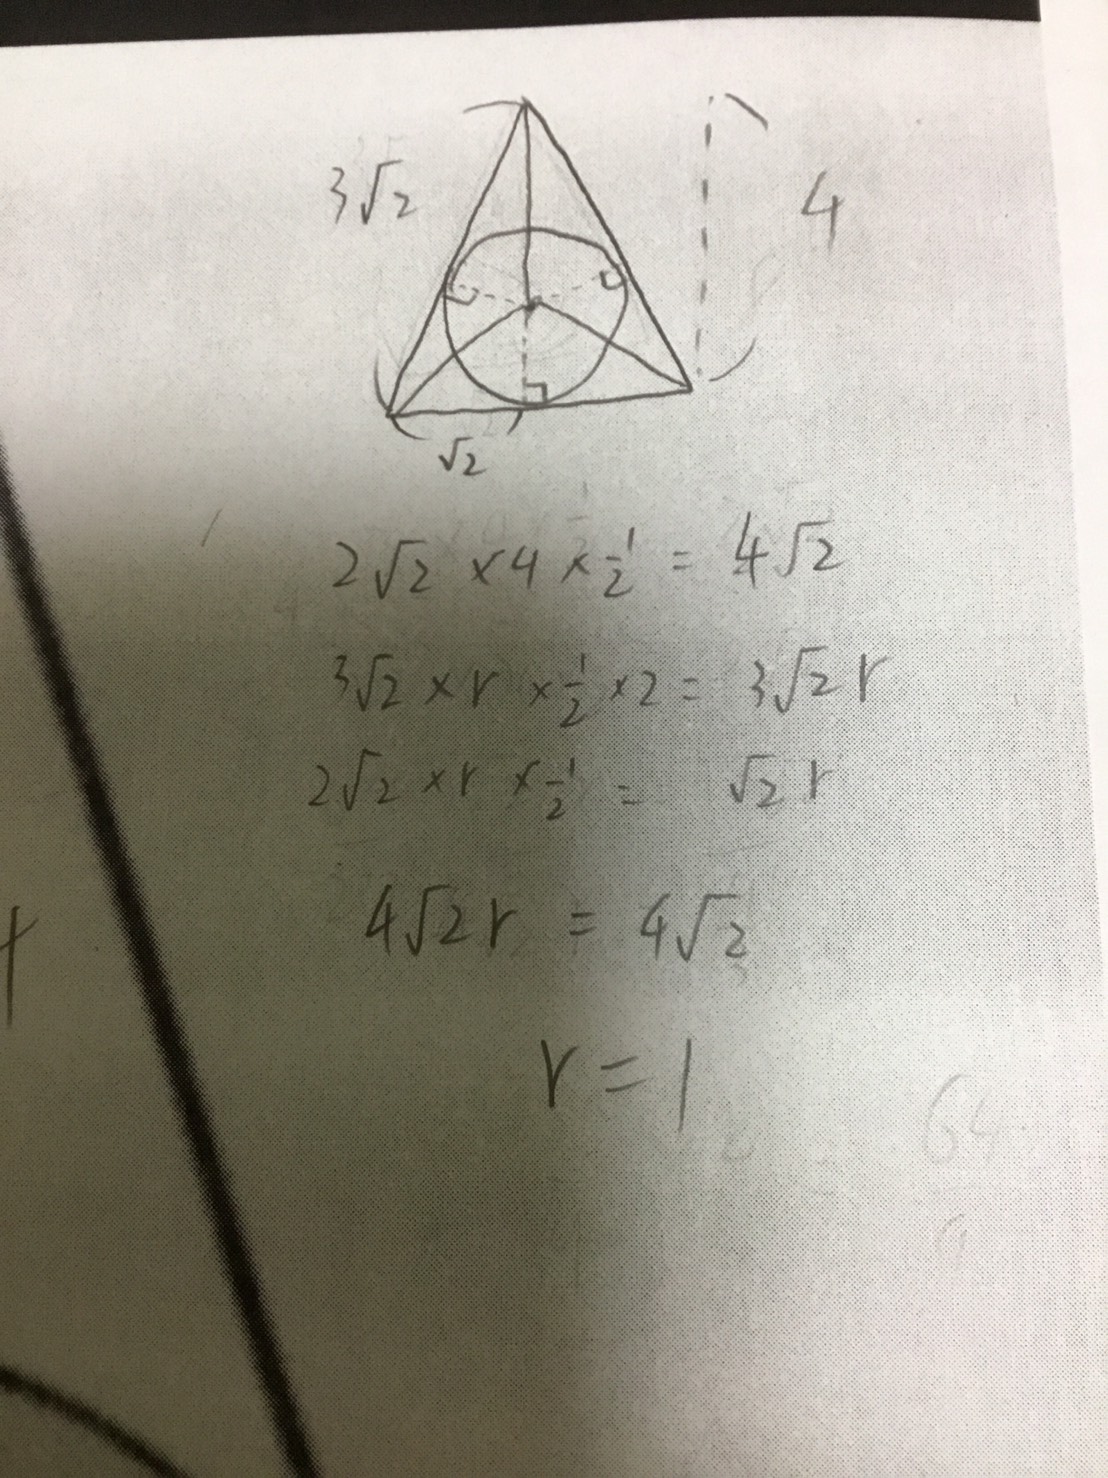 3√2
4
√2
2√2 × 4 × 1/2 = 4√2
3√2 × r × 1/2 × 2 = 3√2 r
2√2 × r × 1/2 = √2 r
4√2 r = 4√2
r = 1
64